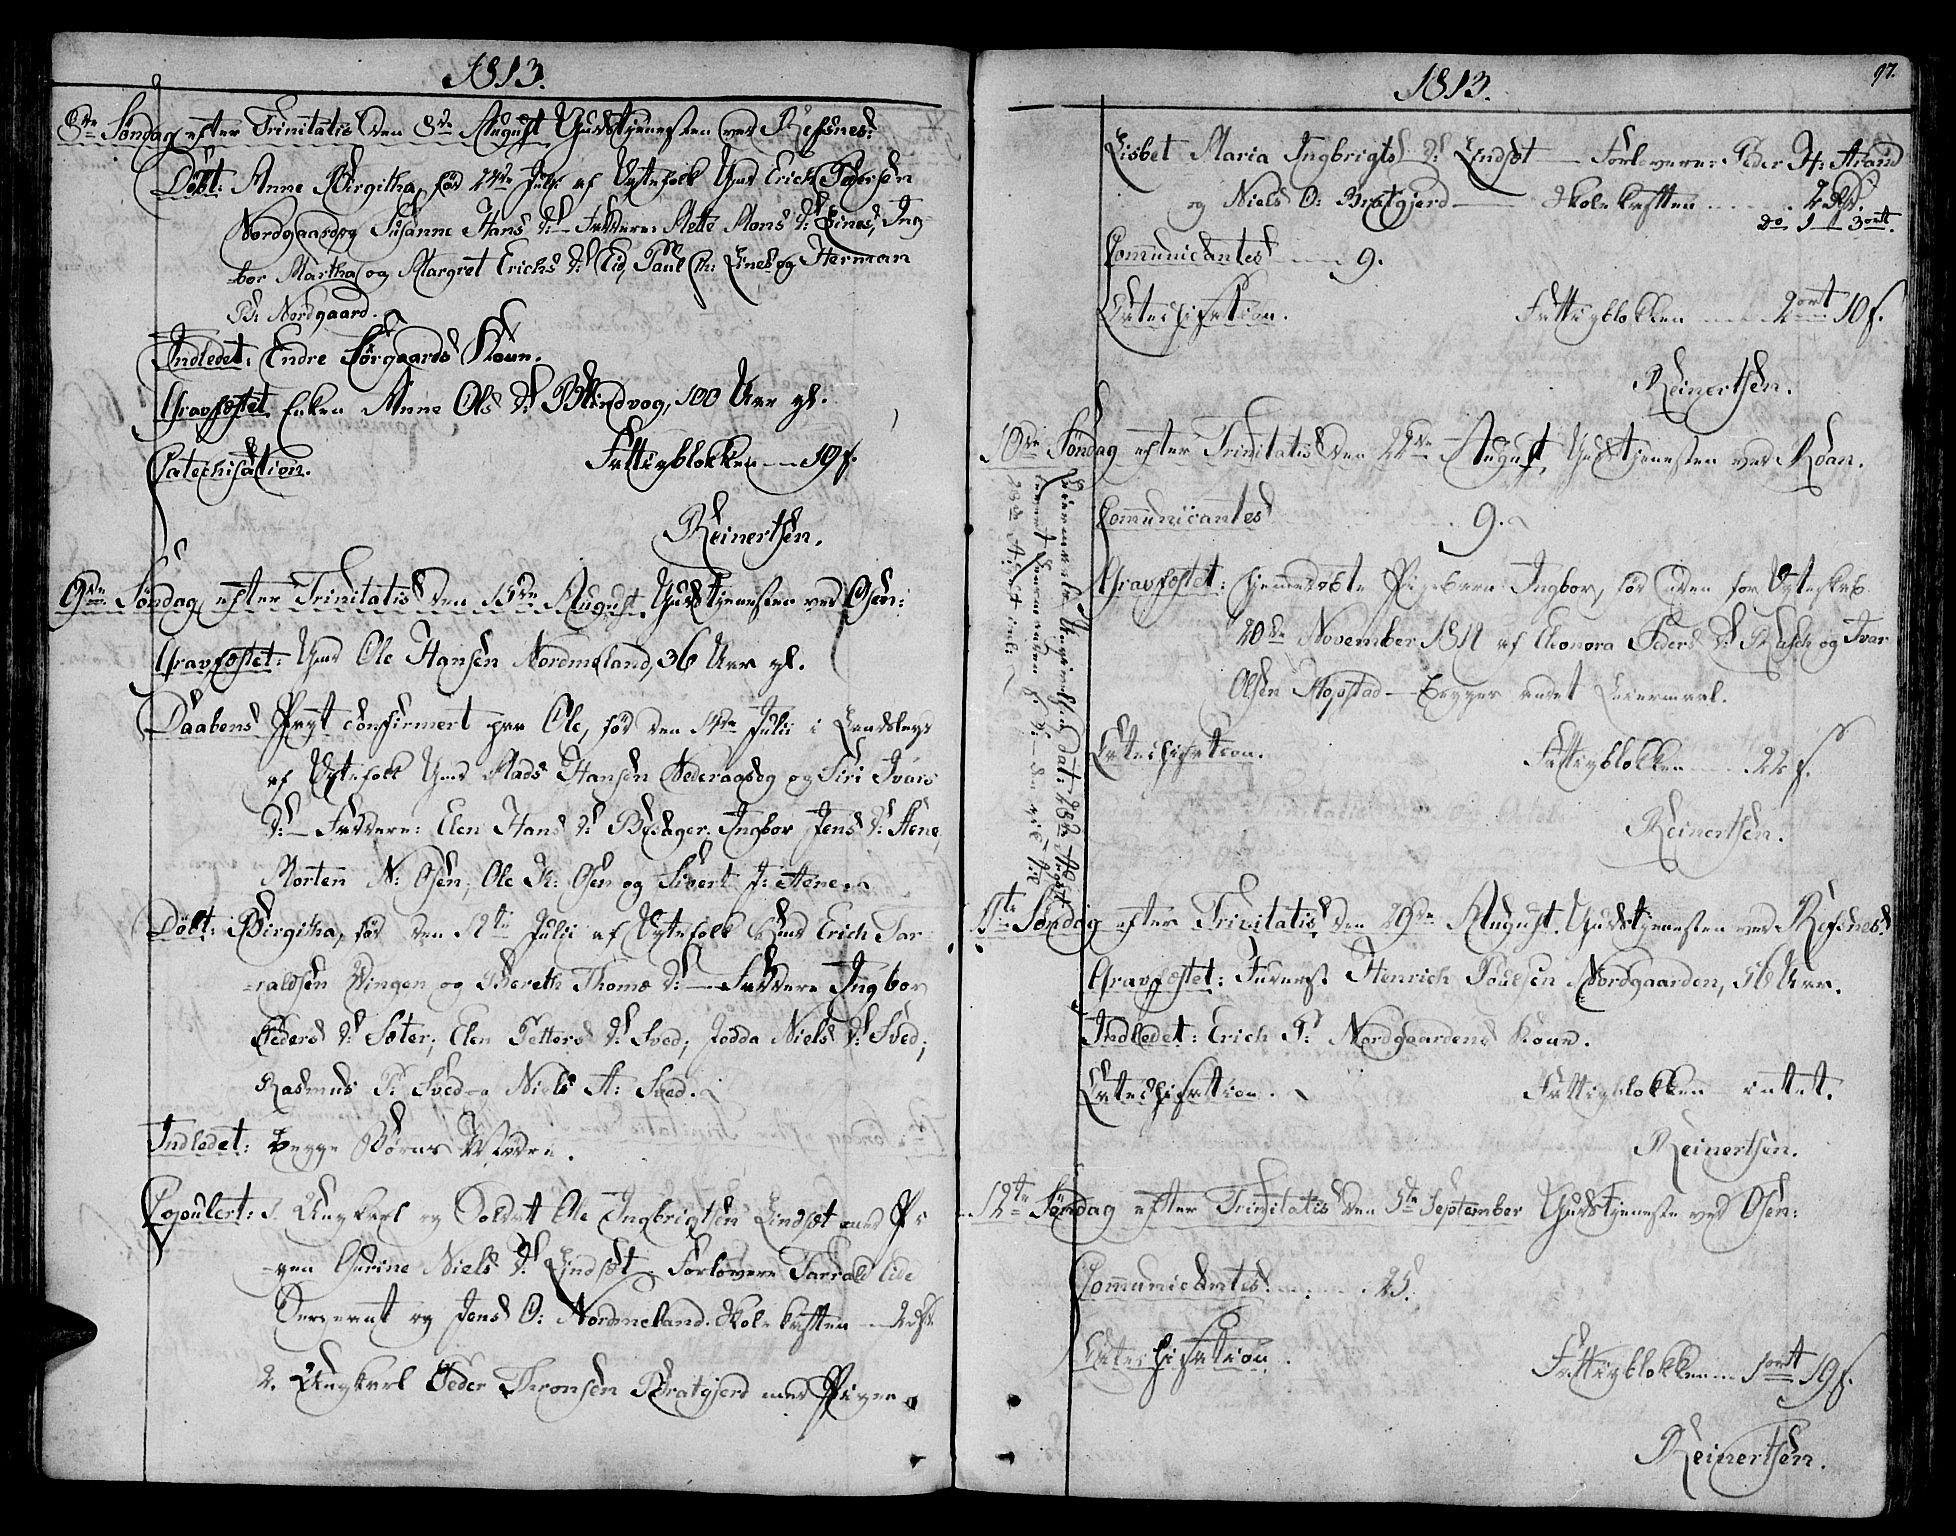 1813.
8de Søndag efter Trinitatis den 8de August Gudstjenesten ved Refsnes:
Døbt: Anne Birgitha, født Julii af Egtefolk Gmd Erich Pedersen
Nordgaard og Susanne Hans D: Faddere: Mette Mons D: Eines, Ing-
bor Martha og Margret Erichs D: Eid, Paul Ch: Eines og Herman
P: Nordgaard.
Indledet: Endre Sørgaards Kone.
Gravfæstet Enken Anne Ols D: Blindvog, 100 Aar gl.
Catechisation. Fattigblokken 19 f.
Reinertsen.
9de Søndag efter Trinitatis den 15de August. Gudstjenesten ved Osen:
Gravfæstet: Gmd Ole Hansen Nordmeland, 36 Aar gl.
Daabens Pagt confirmert paa Ole, fød den Julii i Landsleys
af Egtefolk Gmd Mads Hansen Sederagsdg og Siri Ivars
D: Faddere: Elen Hans D: Besager, Ingbor Jens D: Hene,
Morten N: Osen, Ole K: Osen og Sivert J: Hene.
Døbt: Birgitha, fød den 12te Julii af Egtefolk Gmd Erich Tar
raldsen Vingen og Bereth Thomæ D: Faddere Ingbor
Peders D: Sæter, Elen Petters D: Sved, Jodda Niels D: Sved,
Rasmus P: Sved og Niels A: Sved.
Indledet: begge Børns Mødre.
Copulert: 1. Ungkarl og Soldat Ole Ingbrigtsen Lindsæt med Pi
gen Gurine Niels D: Lindsæt Forlovere Tarrald Eide
Sergeant og Jens O: Nordmeland. Skolekassen
2. Ungkarl Peder Thronsen Bratgjerd med Pigen
1813. 97.
Lisbet Maria Ingbrigts D: Lindsæt Forlovere: Peder H: Strand
og Niels O: Bratgjerd Skolekassen 2
Do 1 3 ort.
Communicantes 9.
Catechisation. Fattigblokken 2 ort 10 f.
Reinertsen.
10de Søndag efter Trinitatis den 22de August, Gudstjenesten ved Roan.
Communicantes 9.
Gravfæstet: hjemmedøbte Pigebarn Ingbor, fød uden for Egteskab
20de November 1812 af Eleonora Peders D: og Ivar
Olsen Hopstad begges andet Leiermaal.
Catechisation. Fattigblokken 22 f.
Reinertsen.
11te Søndag efter Trinitatis den 29de August. Gudstjenesten ved Refsnes:
Gravfæstet: Inderst Henrich Poulsen Nordgaarden, 56 Aar.
Indledet: Erich P: Nordgaardens Kone.
Catechisation. Fattigblokken intet.
Reinertsen.
12te Søndag efter Trinitatis den 5te September Gudstjeneste ved Osen:
Communicantes 25.
Catechisation. Fattigblokken 1 ort 19 f.
Reinertsen.